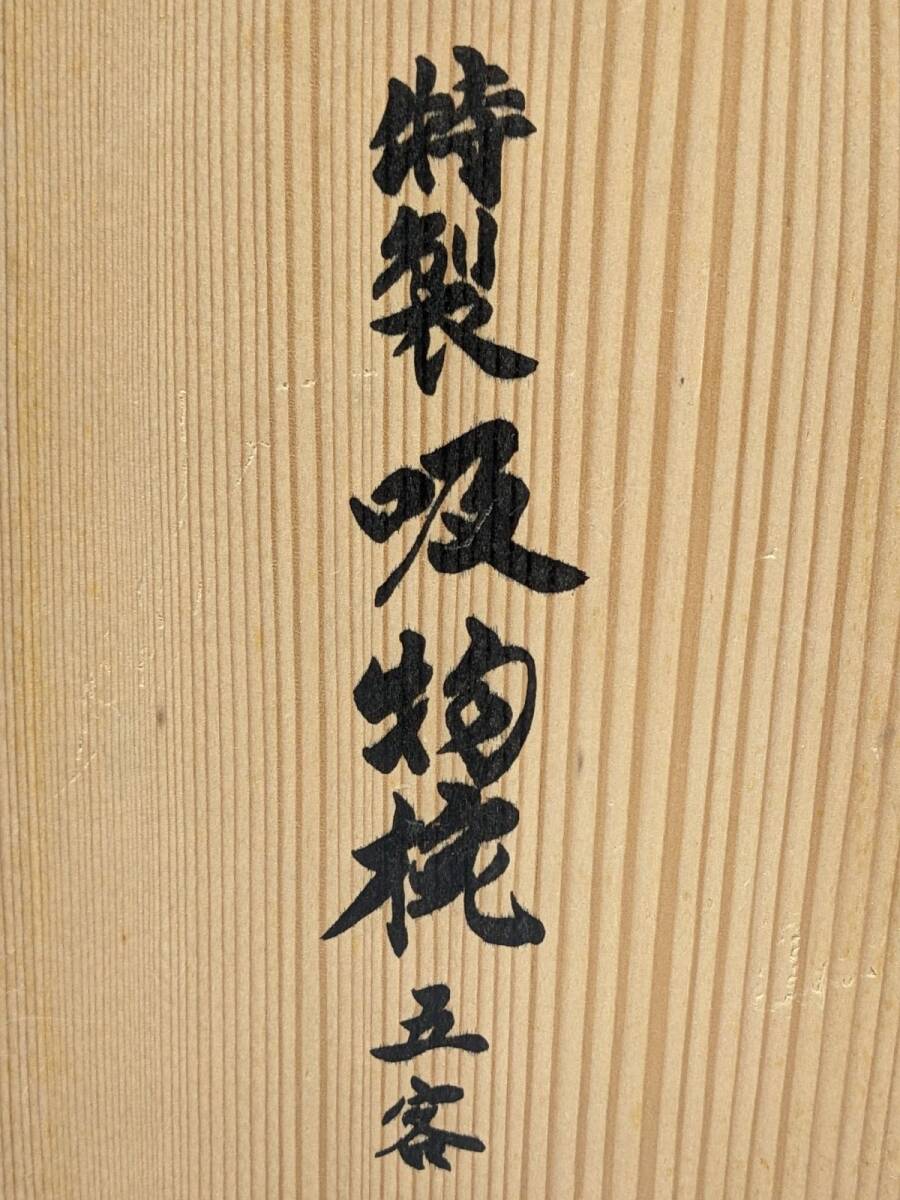 特製吸物椀五客